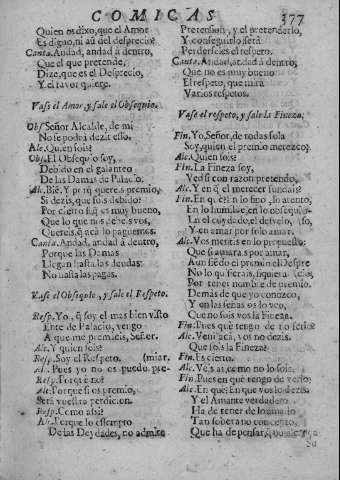 COMICAS 377
Quien os dixo, que el Amor
Es digno, ni aũ del desprecio?
Canta. Andad, andad à dentro,
Que el que pretende,
Dize, que es el Desprecio,
Y el favor quiere.
Vase el Amor, y sale el Obsequio.
Obs. Señor Alcalde, de mi
No se podrà dezir esso.
Alc. Quien sois?
Obs. El Obsequio soy,
Debido en el galanteo
De las Damas de Palacio.
Alc. Biẽ. Y porq̃ quereis premio,
Si dezis, que sois debido?
Por cierto q̃ es muy bueno,
Que lo que nos debe is vos,
Quereis, q̃ acà lo paguemos.
Canta. Andad, andad à dentro,
Porque las Damas
Llegan hasta las deudas:
No hasta las pagas.
Vase el Obsequio, y sale el Respeto.
Resp. Yo, q̃ soy el mas bien visto
Ente de Palacio, vengo
A que me premieis, Señor.
Alc. Y quien sois?
Resp. Soy el Respeto. (miar.
Al. Pues yo no es puedo pre-
Resp. Porque no?
Alc. Porque si os premio,
Serà vuestra perdicion.
Resp. Como assi?
Alc. Porque lo essempto
De las Deydades, no admite
Pretension, y el pretenderlo,
Y conseguirlo serà
Perderles el respeto.
Canta. Andad, andad à dentro,
Que no es muy bueno
El respeto, que mira
Varios respetos.
Vase el respeto, y sale la Fineza.
Fin. Yo, Señor, de todas sola
Soy, quien el premio merezco.
Alc. Quien sois?
Fin. La Fineza soy,
Ved si con razon pretendo,
Alc. Y en q̃ el merecer fundais?
Fin. En q̃ è? en lo fino, lo atento,
En lo humilde, en lo obsequioso,
En el cuydado, el desvelo,
Y en amar por solo amar.
Alc. Vos mentis en lo propuesto:
Que si amara s por amar,
Aun siẽdo el premio el Despre
No lo quisierais, siquiera (cio,
Por tener nombre de premio.
Demàs de que yo conozco,
Y en las señas os lo veo,
Que no sois vos la Fineza.
Fin. Pues què tengo de no serlo?
Alc. Veni acà, vos no dezis.
Que sois la Fineza?
Fin. Es cierto.
Alc. Veis ai, como no lo sois.
Fin. Pues en què tengo de verlo?
Alc. En què? En que vos lo dezis,
Y el Amante verdadero
Ha de tener de lo amado
Tan soberano concepto,
Que ha de pensar, q̃ no alcança
Su